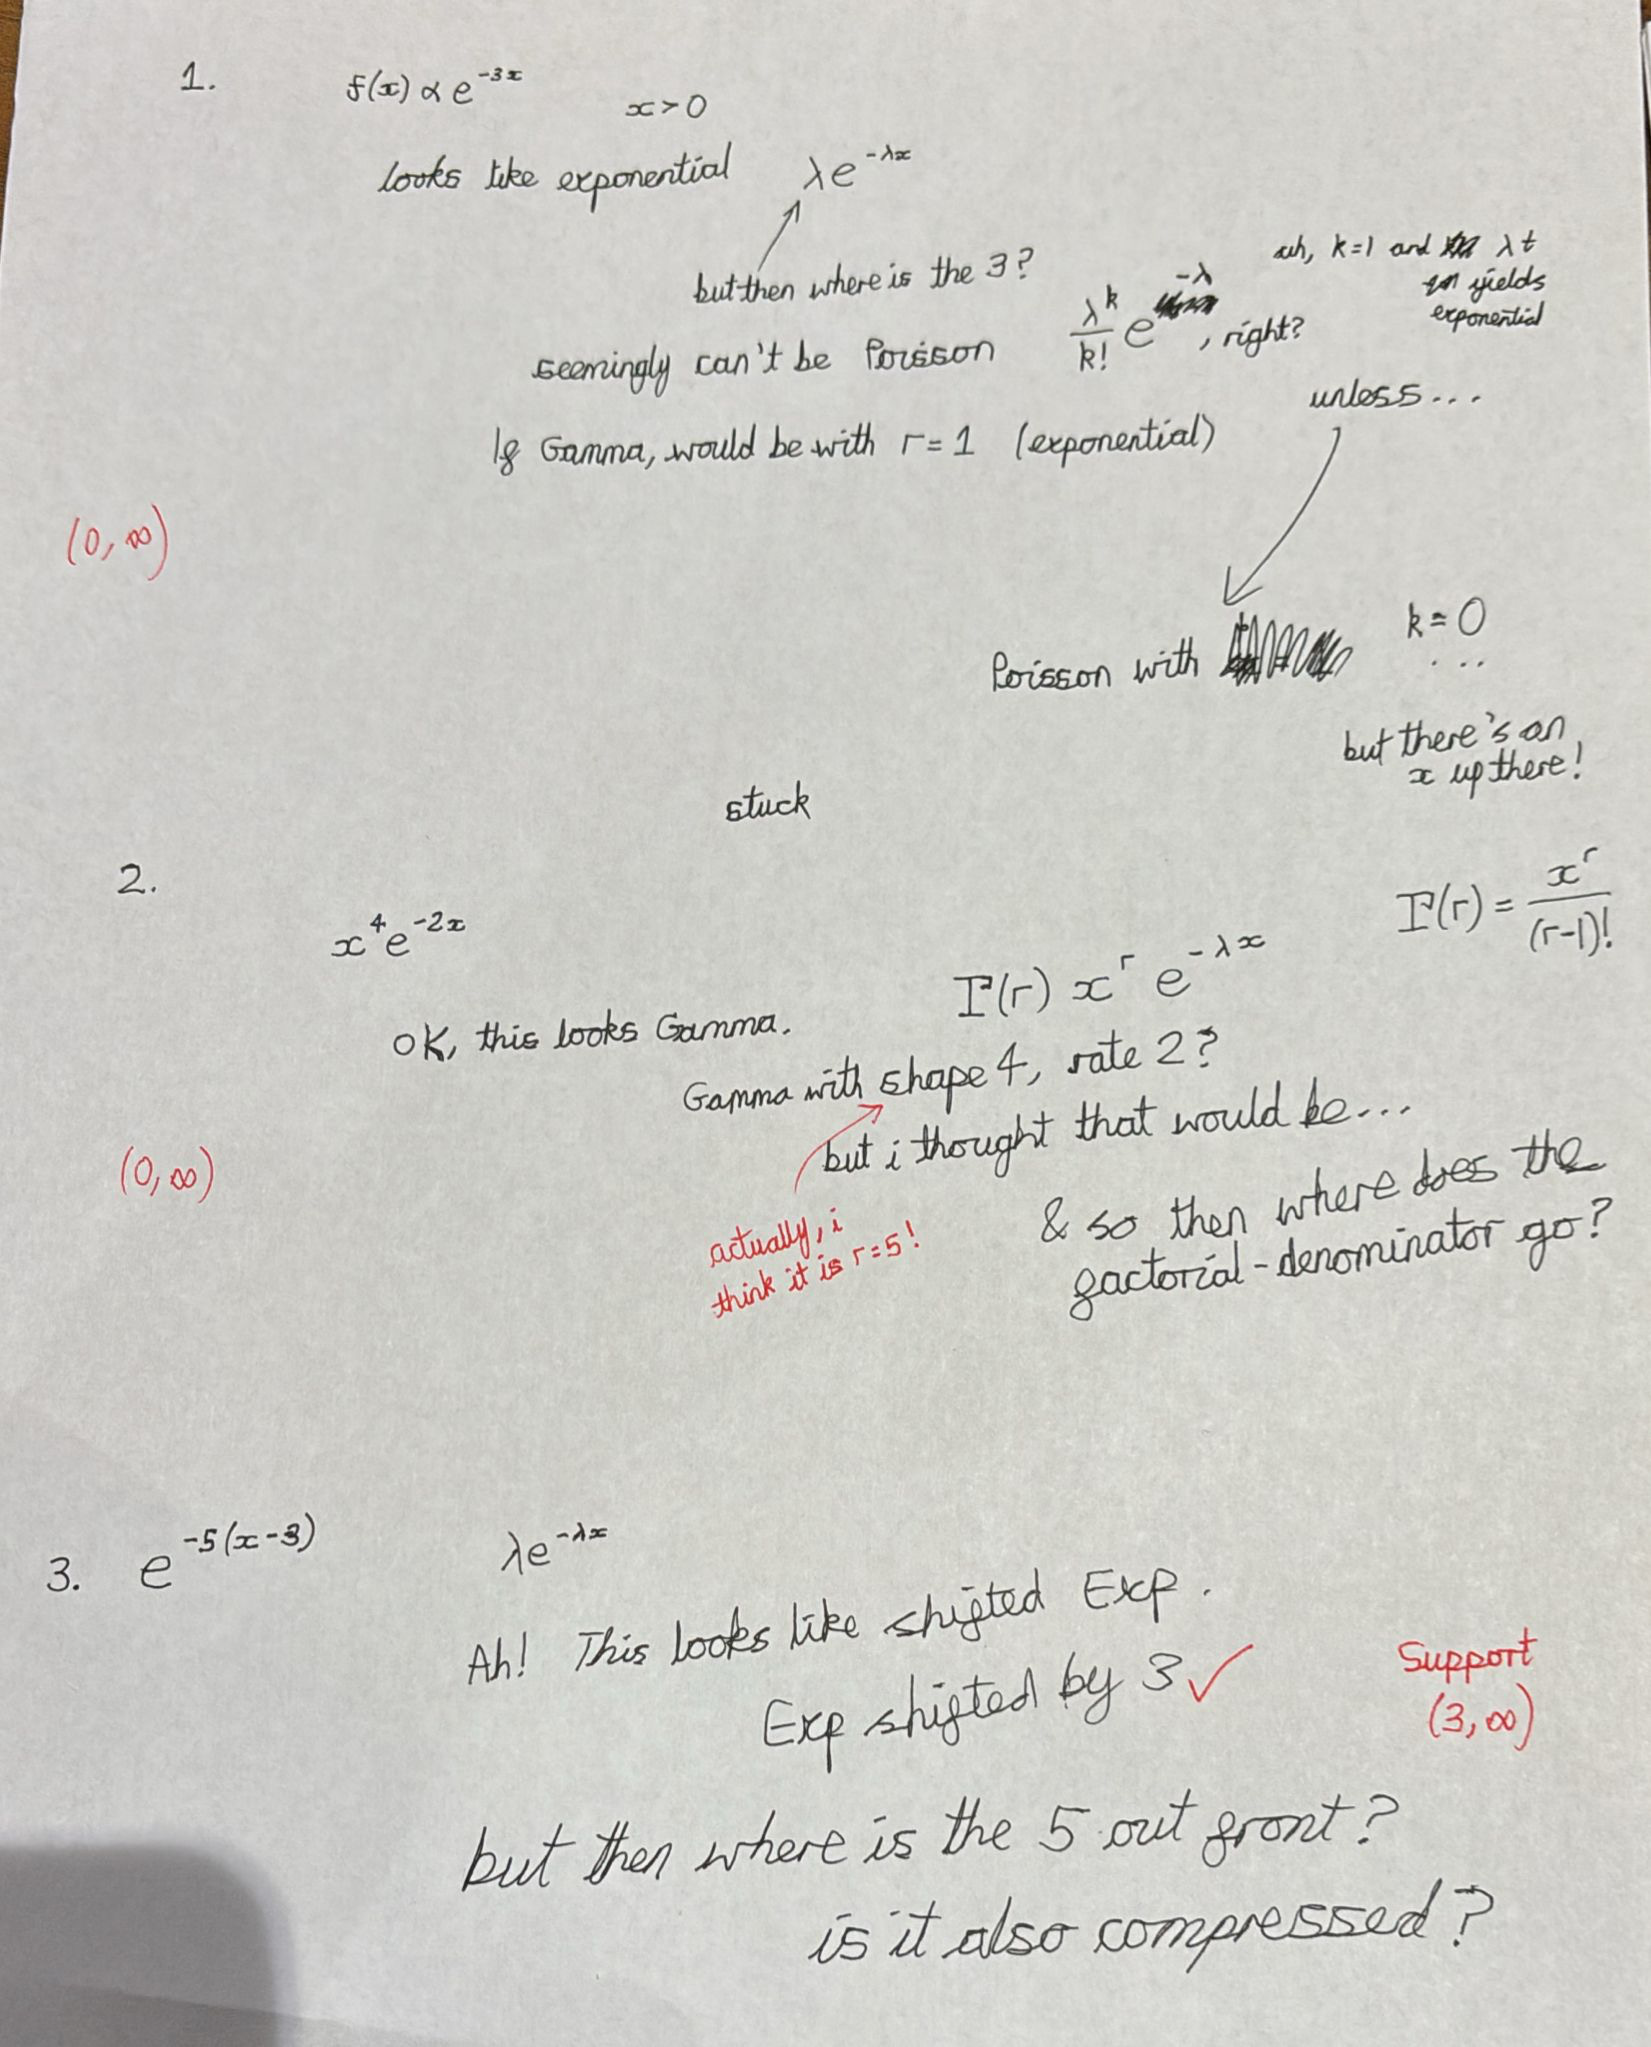 1. f(x) ∝ e^{-3x} x > 0
looks like exponential λe^{-λx}
but then where is the 3?
uh, k=1 and λt
yields
exponential
seemingly can't be Poisson λ^k/k! e^{-λ}, right?
unless...
If Gamma, would be with r = 1 (exponential)
(0, ∞)
Poisson with k = 0
...
but there's an
x up there!
stuck
2.
x^4 e^{-2x}
Γ(r) = x^r/(r-1)!
Γ(r) x^r e^{-λx}
OK, this looks Gamma.
Gamma with shape 4, rate 2?
but i thought that would be...
(0, ∞)
actually, i
think it is r=5!
& so then where does the
factorial-denominator go?
3. e^{-5(x-3)} λe^{-λx}
Ah! This looks like shifted Exp.
Exp shifted by 3 ✓
Support
(3, ∞)
but then where is the 5 out front?
is it also compressed?